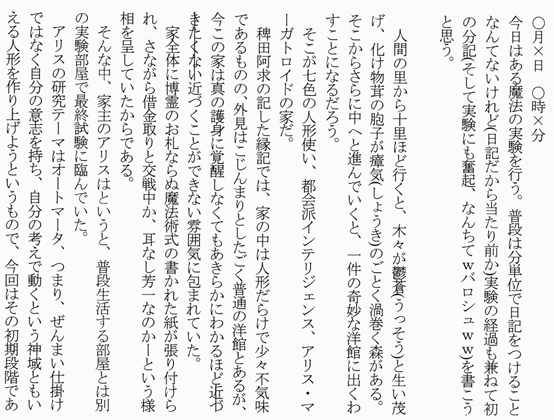 〇月×日　〇時×分
今日はある魔法の実験を行う。普段は分単位で日記をつけること
なんてないけれど(日記だから当たり前か)実験の経過も兼ねて初
の分記(そして実験にも奮起、なんちてｗバロシュｗｗ)を書こう
と思う。
人間の里から十里ほど行くと、木々が鬱蒼(うっそう)と生い茂
げ、化け物茸の胞子が瘴気(しょうき)のごとく渦巻く森がある。
そこからさらに中へと進んでいくと、一件の奇妙な洋館に出くわ
すことになるだろう。
そこが七色の人形使い、都会派インテリジェンス、アリス・マ
ーガトロイドの家だ。
稗田阿求の記した縁記では、家の中は人形だらけで少々不気味
であるものの、外見はこじんまりとしたごく普通の洋館とあるが、
今この家は真の護身に覚醒しなくてもあきらかにわかるほど近づ
きたくない近づくことができない雰囲気に包まれていた。
家全体に博霊のお札ならぬ魔法術式の書かれた紙が張り付けら
れ、さながら借金取りと交戦中か、耳なし芳一なのかーという様
相を呈していたからである。
そんな中、家主のアリスはというと、普段生活する部屋とは別
の実験部屋で最終試験に臨んでいた。
アリスの研究テーマはオートマータ、つまり、ぜんまい仕掛け
ではなく自分の意志を持ち、自分の考えで動くという神域ともい
える人形を作り上げようというもので、今回はその初期段階であ